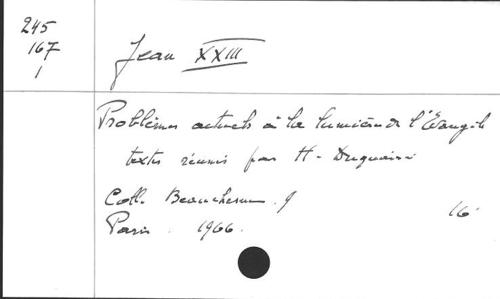 245
167
1
Jean XXIII
Problèmes actuels à la lumière de l'Evangile
textes réunis par H. Duquaire
Coll. Beauchesne. 9
16
Paris. 1966.